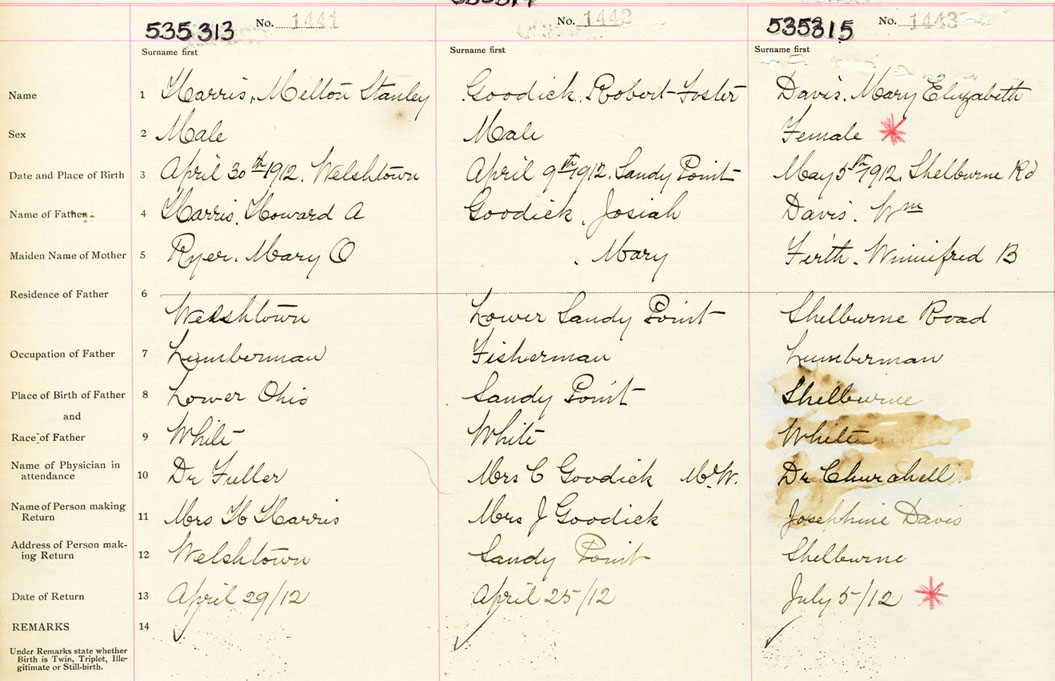 535313 No. 1441 No. 1442 535315 No. 1443
Surname first Surname first Surname first
Name 1 Harris, Milton Stanley Goodick. Robert Foster Davis. Mary Elizabeth
Sex 2 Male Male Female
Date and Place of Birth 3 April 30th 1912. Welshtown April 9th 1912. Sandy Point May 5th 1912. Shelburne Rd
Name of Father 4 Harris. Howard A Goodick. Josiah Davis. Wm
Maiden Name of Mother 5 Ryer. Mary O . Mary Firth. Winnifred B
Residence of Father 6
Welshtown Lower Sandy Point Shelburne Road
Occupation of Father 7 Lumberman Fisherman Lumberman
Place of Birth of Father 8 Lower Ohio Sandy Point Shelburne
and
Race of Father 9 White White White
Name of Physician in
attendance 10 Dr Fuller Mrs C Goodick M.W. Dr Churchell
Name of Person making
Return 11 Mrs H Harris Mrs J Goodick Josephine Davis
Address of Person mak-
ing Return 12 Welshtown Sandy Point Shelburne
Date of Return 13 April 29/12 April 25/12 July 5/12
REMARKS 14
Under Remarks state whether
Birth is Twin, Triplet, Ille-
gitimate or Still-birth.